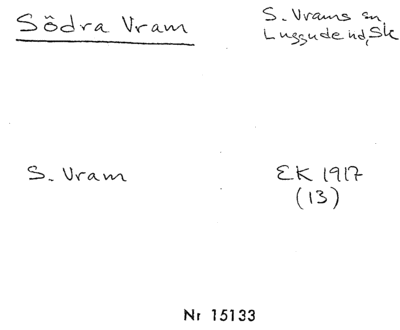 Södra Vram
S. Vrams sn
Luggude hd, Sk
S. Vram
EK 1917
(13)
Nr 15133